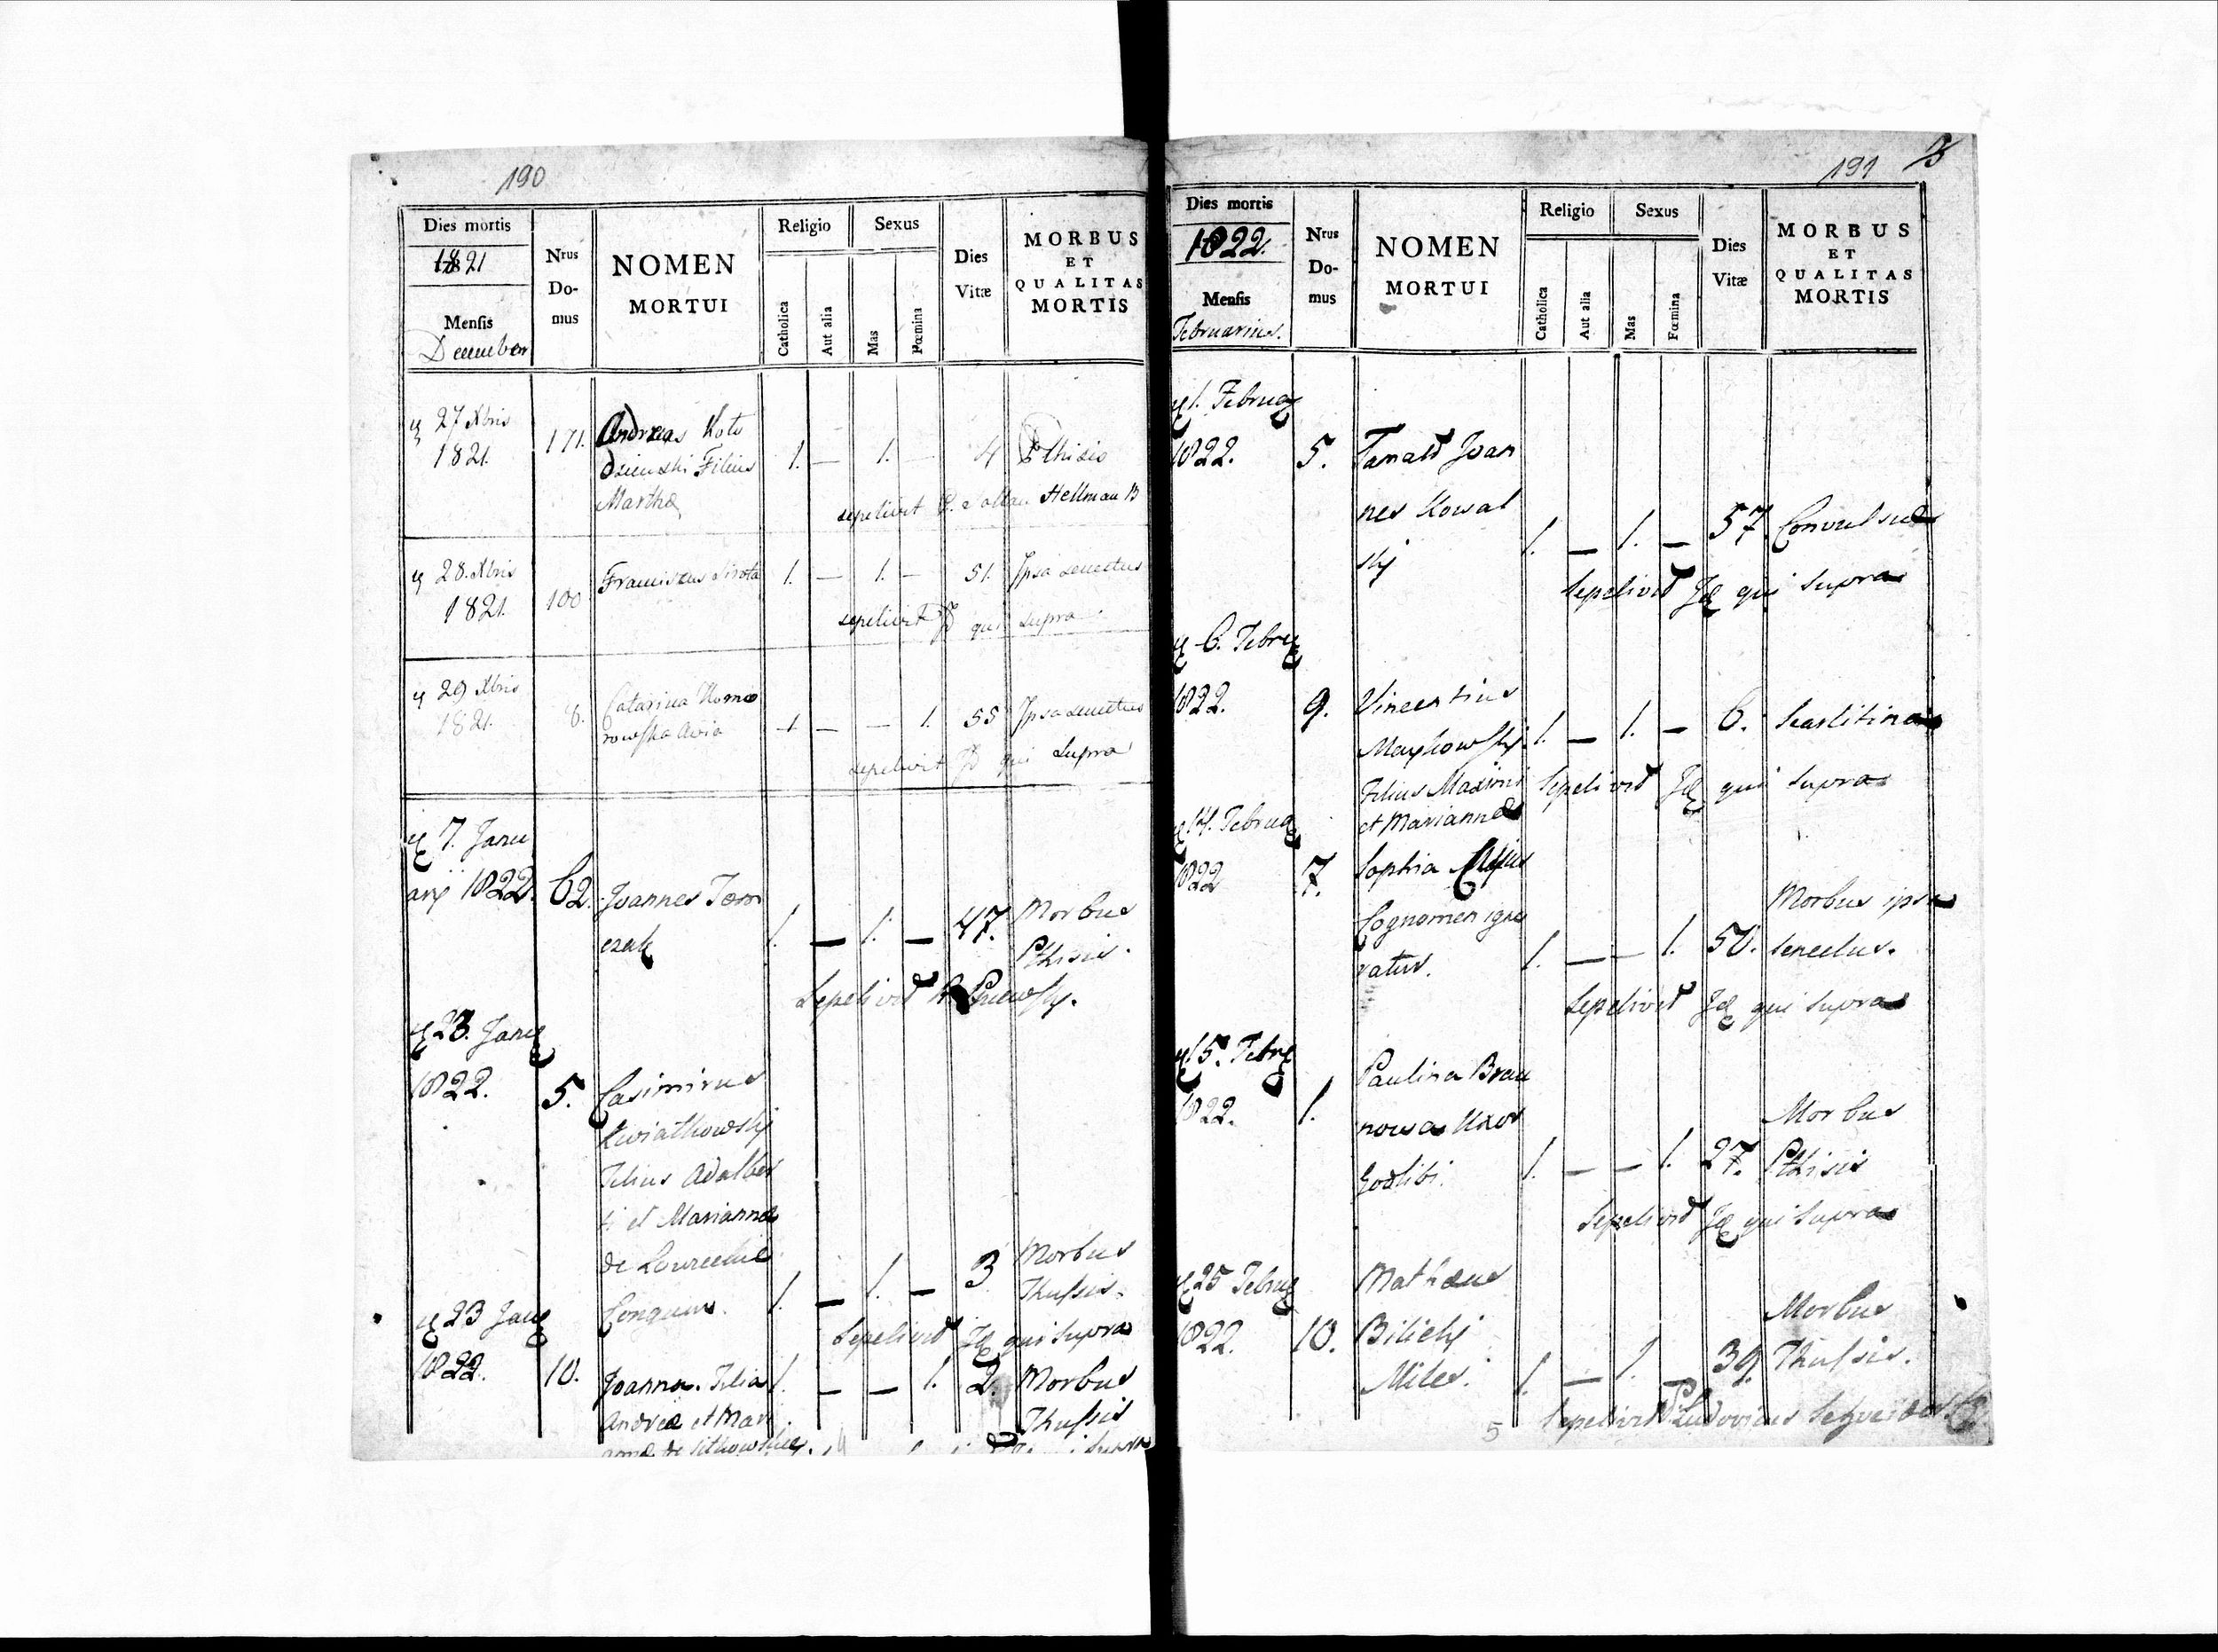 190
Dies mortis
1821
Mensis
December
Nrus
Do-
mus
NOMEN
MORTUI
Religio
Catholica
Aut alia
Sexus
Mas
Fœmina
Dies
Vitæ
MORBUS
ET
QUALITAS
MORTIS
27 Xbris
1821.
171.
Andreas Koto
dzienski Filius
Martha
1. — 1. — 4 Pthisis
sepelivit Hellman
28. Xbris
1821.
100
Franciscus Sirota
1. — 1. — 51. Ipsa senectus
sepelivit Jd qui supra
29 Xbris
1821.
8.
Catarina Komo
rowska
1. — — 1. 55 Ipsa senectus
sepelivit Jd qui supra
7. Janu
arij 1822.
62.
Joannes Tom
czak
1. — 1. — 47. Morbus
Pthisis.
Sepelivit
23. Janu
1822.
5.
Casimirus
Kwiatkowskj
Filius Adalber
ti et Marianna
de
1. — 1. — 3 Morbus
Thussis.
Sepelivit Jd qui supra
23 Janu
1822.
10.
Joanna. Filia
Andrea et Mari
1. — — 1. 2. Morbus
Thussis
supra
191
Dies mortis
1822.
Mensis
Februarius.
Nrus
Do-
mus
NOMEN
MORTUI
Religio
Catholica
Aut alia
Sexus
Mas
Fœmina
Dies
Vitæ
MORBUS
ET
QUALITAS
MORTIS
1. Februa
1822.
5.
Joan
nes Kowal
skj
1. — 1. — 57
Sepelivit Jd qui supra
6. Febru
1822.
9.
Vincentius
Filius Maximi
et Marianna
1. — 1. — 6.
Sepelivit Jd qui supra
14. Februa
1822
7.
Sophia
Cognomen igno
ratur.
1. — — 1. 50. Morbus ipsa
senectus.
Sepelivit Jd qui supra
15. Febru
1822.
1.
Paulina Brau
nowa Uxor
Godlibi.
1. — — 1. 27. Morbus
Pthisis
Sepelivit Jd qui supra
25 Febru
1822.
10.
Mathæus
Bilichj
Miles.
1. — 1. — 39. Morbus
Thussis.
Sepelivit Ludovicus
5